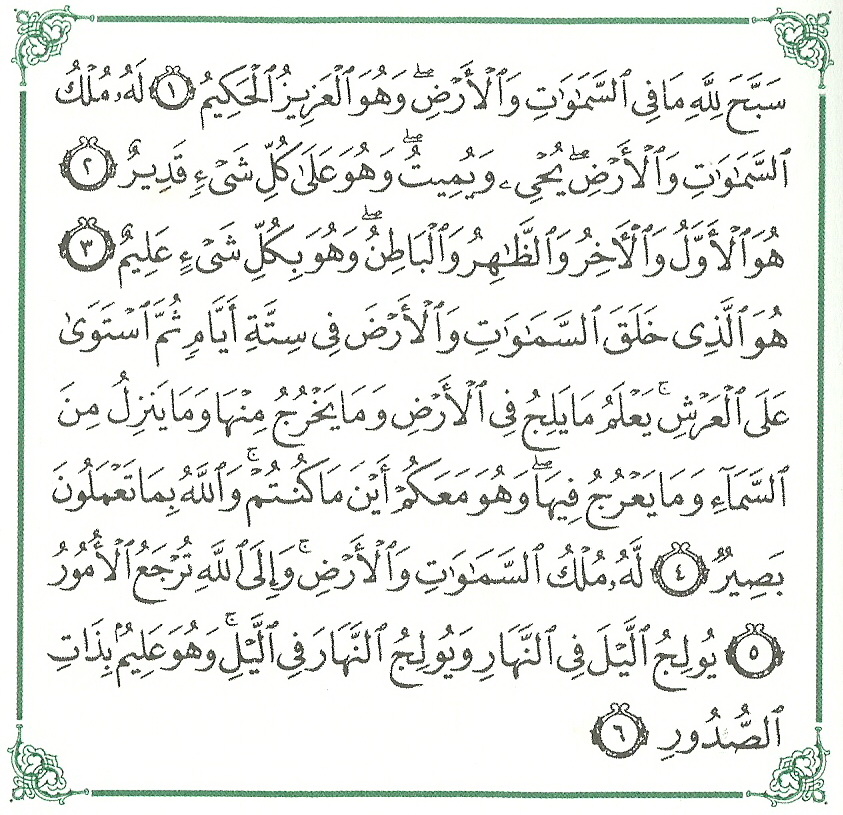 سَبَّحَ لِلَّهِ مَا فِى ٱلسَّمَٰوَٰتِ وَٱلْأَرْضِ ۖ وَهُوَ ٱلْعَزِيزُ ٱلْحَكِيمُ ١ لَهُۥ مُلْكُ
ٱلسَّمَٰوَٰتِ وَٱلْأَرْضِ ۖ يُحْىِۦ وَيُمِيتُ ۖ وَهُوَ عَلَىٰ كُلِّ شَىْءٍ قَدِيرٌ ٢
هُوَ ٱلْأَوَّلُ وَٱلْءَاخِرُ وَٱلظَّٰهِرُ وَٱلْبَاطِنُ ۖ وَهُوَ بِكُلِّ شَىْءٍ عَلِيمٌ ٣
هُوَ ٱلَّذِى خَلَقَ ٱلسَّمَٰوَٰتِ وَٱلْأَرْضَ فِى سِتَّةِ أَيَّامٍ ثُمَّ ٱسْتَوَىٰ
عَلَى ٱلْعَرْشِ ۚ يَعْلَمُ مَا يَلِجُ فِى ٱلْأَرْضِ وَمَا يَخْرُجُ مِنْهَا وَمَا يَنزِلُ مِنَ
ٱلسَّمَآءِ وَمَا يَعْرُجُ فِيهَا ۖ وَهُوَ مَعَكُمْ أَيْنَ مَا كُنتُمْ ۚ وَٱللَّهُ بِمَا تَعْمَلُونَ
بَصِيرٌ ٤ لَّهُۥ مُلْكُ ٱلسَّمَٰوَٰتِ وَٱلْأَرْضِ ۚ وَإِلَى ٱللَّهِ تُرْجَعُ ٱلْأُمُورُ
٥ يُولِجُ ٱلَّيْلَ فِى ٱلنَّهَارِ وَيُولِجُ ٱلنَّهَارَ فِى ٱلَّيْلِ ۚ وَهُوَ عَلِيمٌۢ بِذَاتِ
ٱلصُّدُورِ ٦